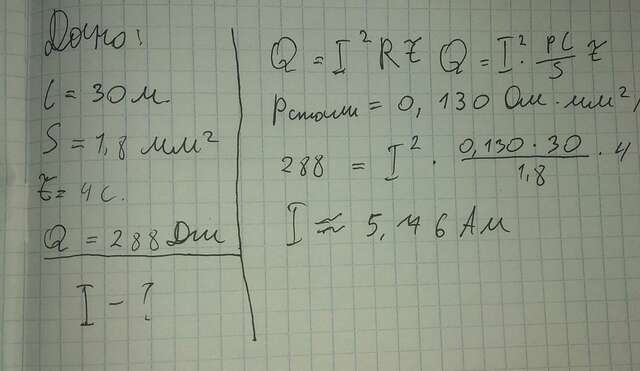 Дано:
l = 30 м.
S = 1,8 мм²
t = 4 с.
Q = 288 Дж
I - ?
Q = I² R t Q = I² · ρl/S t
ρстали = 0, 130 Ом · мм²/
288 = I² · 0,130 · 30/1,8 · 4
I ≈ 5,76 Ам